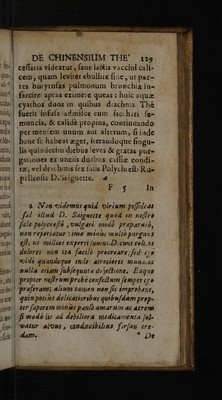 DE CHINENSIUM THE' 129
cessaria videatur, sane lactis vaccini cali-
cem, quam leviter ebullire sine, ut par-
tes butyrosas pulmonum bronchia in-
farcire aptas eximere queas: huic aquæ
cyathos duos in quibus drachma Thé
fuerit infusa admisce cum sacchari se-
muncia, & calidè propina, continuando
per mensem unum aut alterum, si inde
bonè se habeat æger, iterandoque singu-
lis quindecim diebus leves & gratas pur-
gationes ex unciis duabus cassiæ condi-
tæ, vel drachmis sex salis Polychresti Ru-
pellensis D. Saignette. a
F 5 In
a Non videmus quid virium possideat
sal illud D. Saignette quod in nostro
sale polycresto, vulgari modo præparato,
non reperiatur: imo minus nullo purgans
est, ut millies experti sumus. D. cunt eoß, eo
dolores non ita facile procreare, sed ego
vidi quandoque inde atrociores munere
nulla etiam subsequuta dejectione. Eaque
propter nostrum probe confectum semper ego
præferam; alium tamen non sic improbans,
quin potius delicatioribus quibusdam prop-
ter saporem minus paulò amarum ac acrem
si modo iis ad debiliora medicamenta sol-
vatur alvus, conducibilius forsan cre-
dam. * De